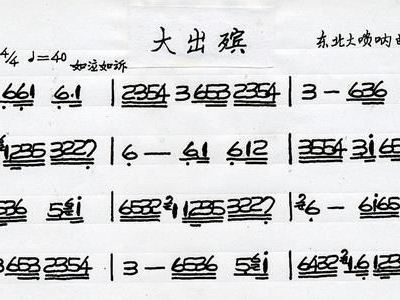 大出殡
4/4 ♩=40 如泣如诉 东北大唢呐曲
661 6.1 | 2354 3 653 2354 | 3 — 636
1235 3227 | 6 — 61 612 | 3554 3i 65
536 5 i | 6532 1 1235 3227 | 6 — 6i65
3 653 2354 | 3 — 6536 5 i | 6432 1 6 123